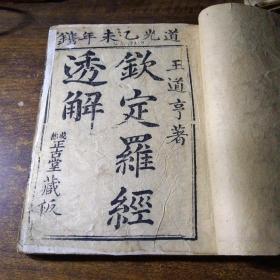 道光乙未年鐫
王道亨著
欽定羅經
透解
正古堂藏板